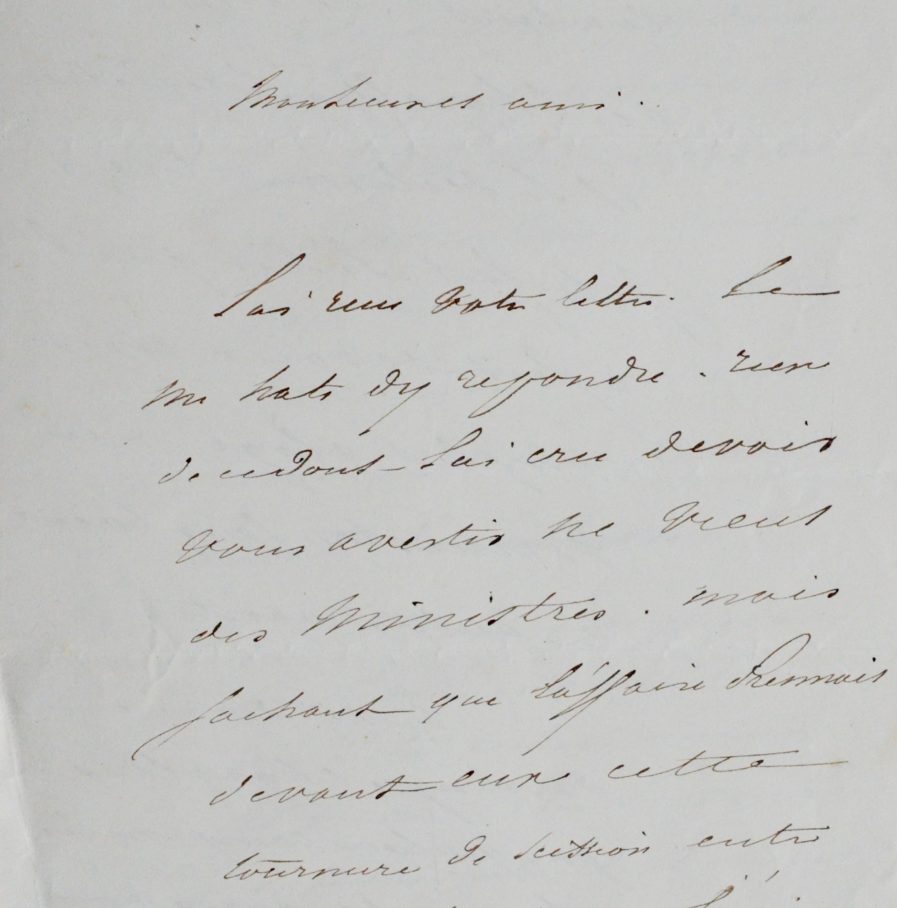 Monsieur et ami.
J'ai reçu votre lettre. Je
me hate dy repondre. rien
de ce dont J'ai cru devoir
vous avertir ne vient
des Ministres. mais
sachant que l'affaire prennait
devant eux cette
tournure de scission entre